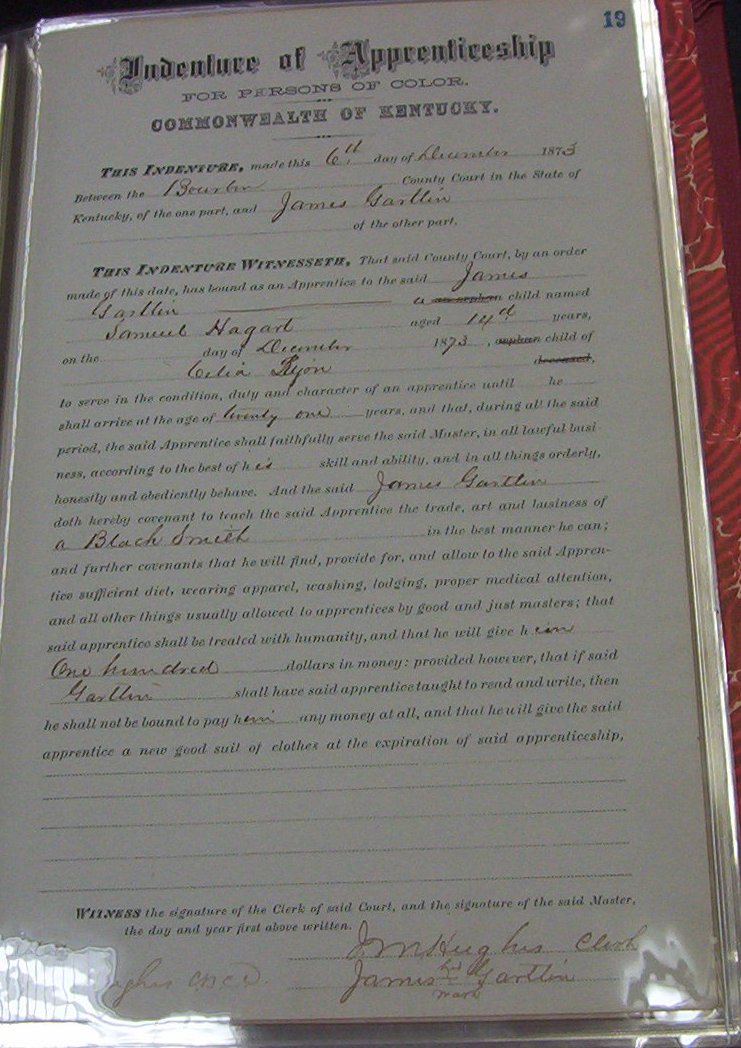 19
Indenture of Apprenticeship
FOR PERSONS OF COLOR.
COMMONWEALTH OF KENTUCKY.
THIS INDENTURE, made this 6th day of December 1873
Between the Bourbon County Court in the State of
Kentucky, of the one part, and James Gartlin
of the other part.
THIS INDENTURE WITNESSETH, That said County Court, by an order
made of this date, has bound as an Apprentice to the said James
Gartlin a an orphan child named
Samuel Hagart aged 14 years,
on the day of December 1873, orphan child of
Celia deceased,
to serve in the condition, duty and character of an apprentice until he
shall arrive at the age of twenty one years, and that, during all the said
period, the said Apprentice shall faithfully serve the said Master, in all lawful busi
ness, according to the best of his skill and ability, and in all things orderly,
honestly and obediently behave. And the said James Gartlin
doth hereby covenant to teach the said Apprentice the trade, art and business of
a Black Smith in the best manner he can;
and further covenants that he will find, provide for, and allow to the said Appren-
tice sufficient diet, wearing apparel, washing, lodging, proper medical attention,
and all other things usually allowed to apprentices by good and just masters; that
said apprentice shall be treated with humanity, and that he will give him
One hundred dollars in money: provided however, that if said
Gartlin shall have said apprentice taught to read and write, then
he shall not be bound to pay him any money at all, and that he will give the said
apprentice a new good suit of clothes at the expiration of said apprenticeship,
WITNESS the signature of the Clerk of said Court, and the signature of the said Master,
the day and year first above written.
J.M. Hughis Clerk
James Gartlin
mark